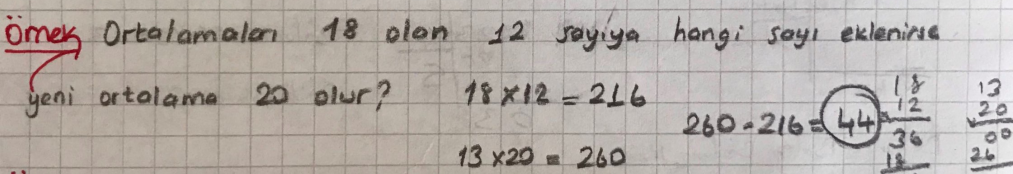 Örnek Ortalamaları 18 olan 12 sayıya hangi sayı eklenirse
yeni ortalama 20 olur? 18×12 = 216
260 - 216 = 44
13×20 = 260
18
12
36
18
13
× 20
00
26